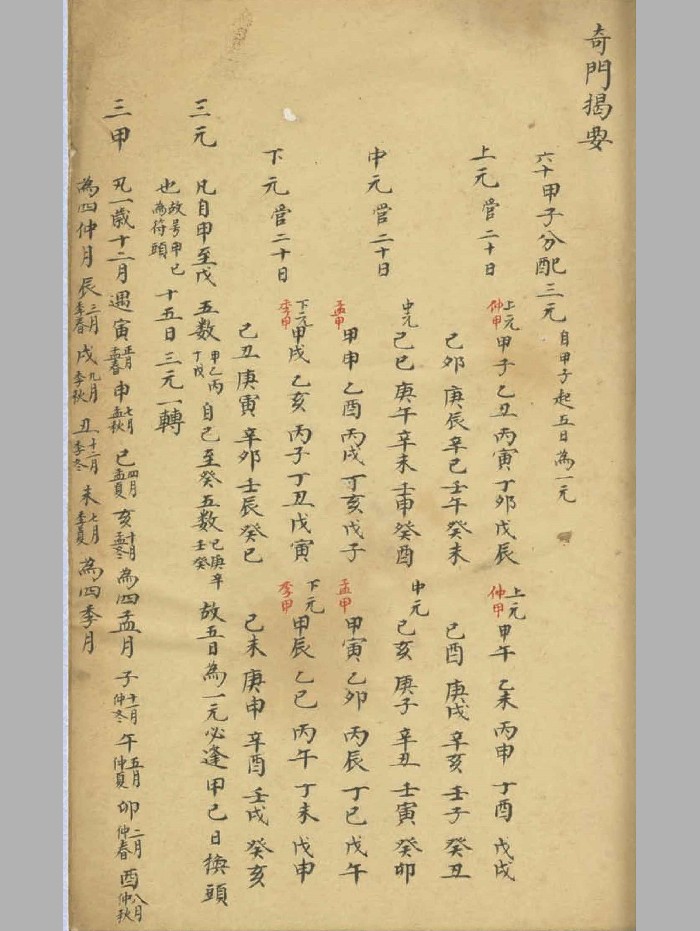 奇門揭要
六十甲子分配三元 自甲子起五日為一元
上元管二十日 上元 仲甲 甲子乙丑丙寅丁卯戊辰 上元 仲甲 甲午乙未丙申丁酉戊戌
己卯庚辰辛巳壬午癸未 己酉庚戌辛亥壬子癸丑
中元管二十日 中元 己巳庚午辛未壬申癸酉 中元 己亥庚子辛丑壬寅癸卯
孟甲 甲申乙酉丙戌丁亥戊子 孟甲 甲寅乙卯丙辰丁巳戊午
下元管二十日 下元 季甲 甲戌乙亥丙子丁丑戊寅 下元 季甲 甲辰乙巳丙午丁未戊申
己丑庚寅辛卯壬辰癸巳 己未庚申辛酉壬戌癸亥
三元 凡自甲至戊五数 甲乙丙丁戊 自己至癸五数 己庚辛壬癸 故五日為一元必逢甲己日換頭
也 故号甲己為符頭 十五日三元一轉
三甲 凡一歲十二月遇寅 正月孟春 申 七月孟秋 巳 四月孟夏 亥 十月孟冬 為四孟月子 十一月仲冬 午 五月仲夏 卯 二月仲春 酉 八月仲秋
為四仲月辰 三月季春 戌 九月季秋 丑 十二月季冬 未 七月季夏 為四季月